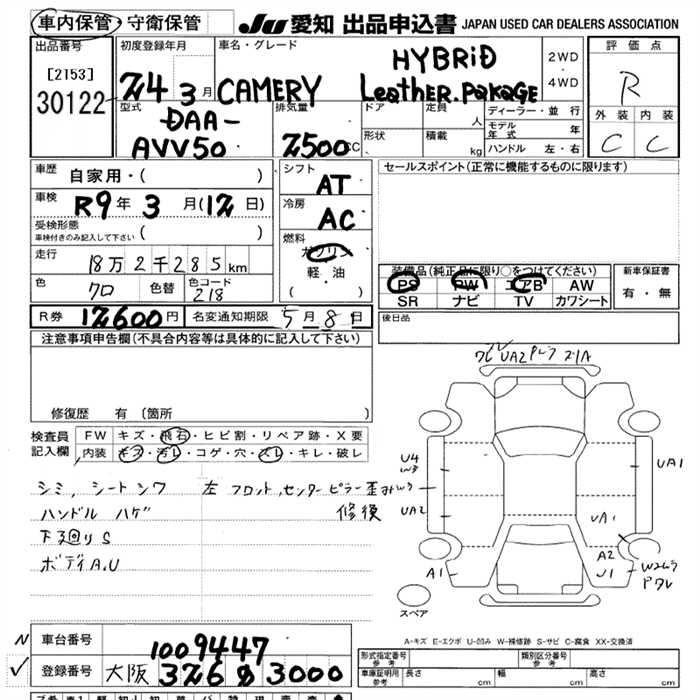 車内保管・守衛保管
JU 愛知 出品申込書 JAPAN USED CAR DEALERS ASSOCIATION
出品番号
[2153]
30122
初度登録年月
24 3月
車名・グレード
CAMERY
HYBRiD
Leather.Pakage
2WD
・
4WD
評価点
R
外装 内装
C C
型式
DAA-
AVV50
排気量
2500CC
ドア
定員
人
形状
積載
kg
ディーラー・並行
モデル年式 年
ハンドル 左・右
車歴 自家用・( )
車検 R9年3月(12日)
受検形態
車検付きのみ記入して下さい ( )
走行
18万2千285km
色
クロ
色替
色コード
218
シフト
AT
冷房
AC
燃料
ガソリン
軽・油
( ・ )
セールスポイント(正常に機能するものに限ります)
装備品(純正品に限り○をつけてください)
PS PW エアB AW
SR ナビ TV カワシート
新車保証書
有・無
R券 12600円 名変通知期限 5月8日
後日品
注意事項申告欄(不具合内容等は具体的に記入して下さい)
修復歴 有 (箇所
検査員記入欄
FW キズ・飛石・ヒビ割・リペア跡・X要
内装 キズ・汚レ・コゲ・穴・スレ・キレ・破レ
シミ, シートシワ 左フロント,センターピラー歪み
W3
ハンドル ハゲ 修復
下廻りS
ボディA.U
ワレ UA2 Pレフ ズリA
U4
W3
UA2
UA1
UA1
A2
J1
A1
スペア
A-キズ E-エクボ U-凹み W-補修跡 S-サビ C-腐食 XX-交換済
車台番号 1009447
登録番号 大阪 326 す 3000
N
✓
形式指定番号
参考
類別区分番号
参考
車庫証明用
参考
長さ cm
幅 cm
高さ cm